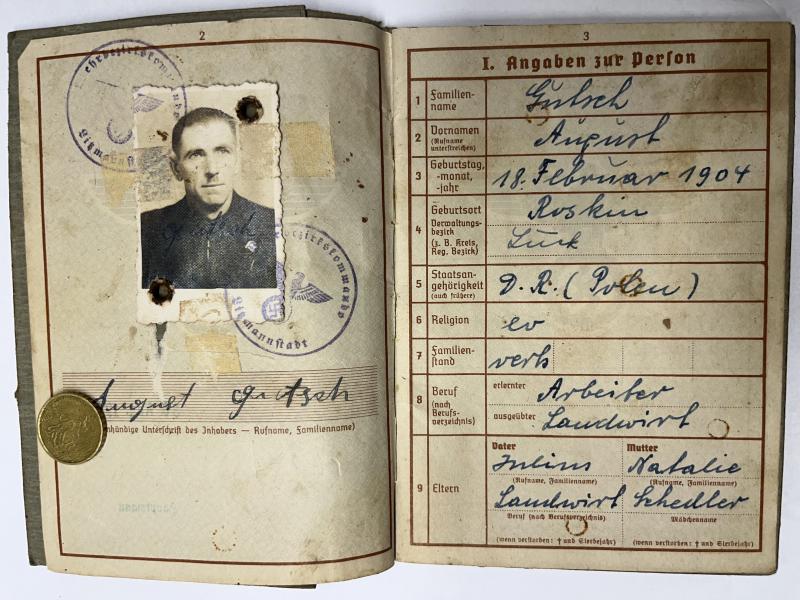 2
Wehrbezirkskommando
Litzmannstadt
Wehrbezirkskommando
Litzmannstadt
August Gutsch
(Eigenhändige Unterschrift des Inhabers — Rufname, Familienname)
3
I. Angaben zur Person
1 Familien-
name
Gutsch
2 Vornamen
(Rufname
unterstreichen)
August
3 Geburtstag,
-monat,
-jahr
18. Februar 1904
4 Geburtsort
Verwaltungs-
bezirk
(z. B. Kreis,
Reg. Bezirk)
Roskin
Luck
5 Staatsan-
gehörigkeit
(auch frühere)
D. R. (Polen)
6 Religion
ev
7 Familien-
stand
verh
8 Beruf
(nach
Berufs-
verzeichnis)
erlernter
Arbeiter
ausgeübter
Landwirt
9 Eltern
Vater
Julius
(Rufname, Familienname)
Landwirt
Beruf (nach Berufsverzeichnis)
(wenn verstorben: † und Sterbejahr)
Mutter
Natalie
(Rufname, Familienname)
Schedler
Mädchenname
(wenn verstorben: † und Sterbejahr)